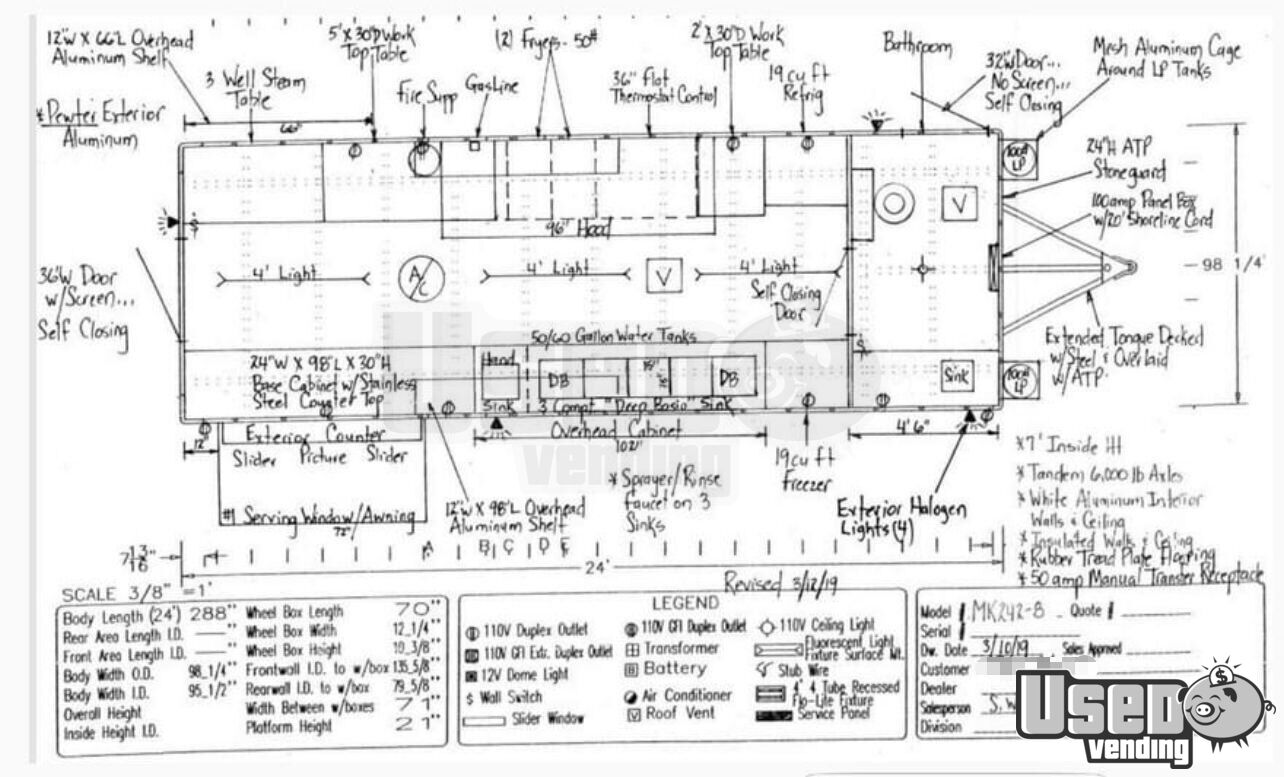 12"W X 66"L Overhead
Aluminum Shelf
5' X 30"D Work
Top Table
(2) Fryers - 50#
2' X 30"D Work
Top Table
Bathroom
32"W Door...
No Screen...
Self Closing
Mesh Aluminum Cage
Around LP Tanks
3 Well Steam
Table
Fire Supp
Gas Line
36" Flat
Thermostat Control
19 cu ft
Refrig
* Pewter Exterior
Aluminum
66"
100# LP
24"H ATP
Stoneguard
100 amp Panel Box
w/20' Shoreline Cord
V
96" Hood
98 1/4"
4' Light
A/C
4' Light
V
4' Light
Self Closing
Door
36"W Door
w/Screen...
Self Closing
50/60 Gallon Water Tanks
Extended Tongue Decked
w/Steel & Overlaid
w/ATP
24"W X 98"L X 30"H
Base Cabinet w/Stainless
Steel Counter Top
Hand
Sink
DB
15"
DB
3 Compt "Deep Basin" Sink
Sink
100# LP
12"
Exterior Counter
Slider Picture Slider
Overhead Cabinet
102"
4' 6"
#1 Serving Window/Awning
72"
12"W X 98"L Overhead
Aluminum Shelf
* Sprayer/Rinse
faucet on 3
Sinks
19 cu ft
Freezer
Exterior Halogen
Lights (4)
* 7' Inside Ht
* Tandem 6,000 lb Axles
* White Aluminum Interior
Walls & Ceiling
* Insulated Walls & Ceiling
* Rubber Tread Plate Flooring
* 50 amp Manual Transfer Receptacle
7 13/16"
A B C D E
24'
Revised 3/12/19
SCALE 3/8" = 1'
Body Length (24') 288"
Rear Area Length I.D.
Front Area Length I.D.
Body Width O.D. 98_1/4"
Body Width I.D. 95_1/2"
Overall Height
Inside Height I.D.
Wheel Box Length 70"
Wheel Box Width 12_1/4"
Wheel Box Height 10_3/8"
Frontwall I.D. to w/box 135_5/8"
Rearwall I.D. to w/box 79_5/8"
Width Between w/boxes 71"
Platform Height 21"
LEGEND
110V Duplex Outlet
110V GFI Extr. Duplex Outlet
12V Dome Light
$ Wall Switch
Slider Window
110V GFI Duplex Outlet
Transformer
Battery
Air Conditioner
V Roof Vent
110V Ceiling Light
Fluorescent Light
Fixture Surface Mt.
Stub Wire
4', 4 Tube Recessed
Flo-Lite Fixture
Service Panel
Model # MK242-8 Quote #
Serial #
Dw. Date 3/10/19 Sales Approved
Customer
Dealer
Salesperson S.W
Division
Used
Vending
Used
Vending